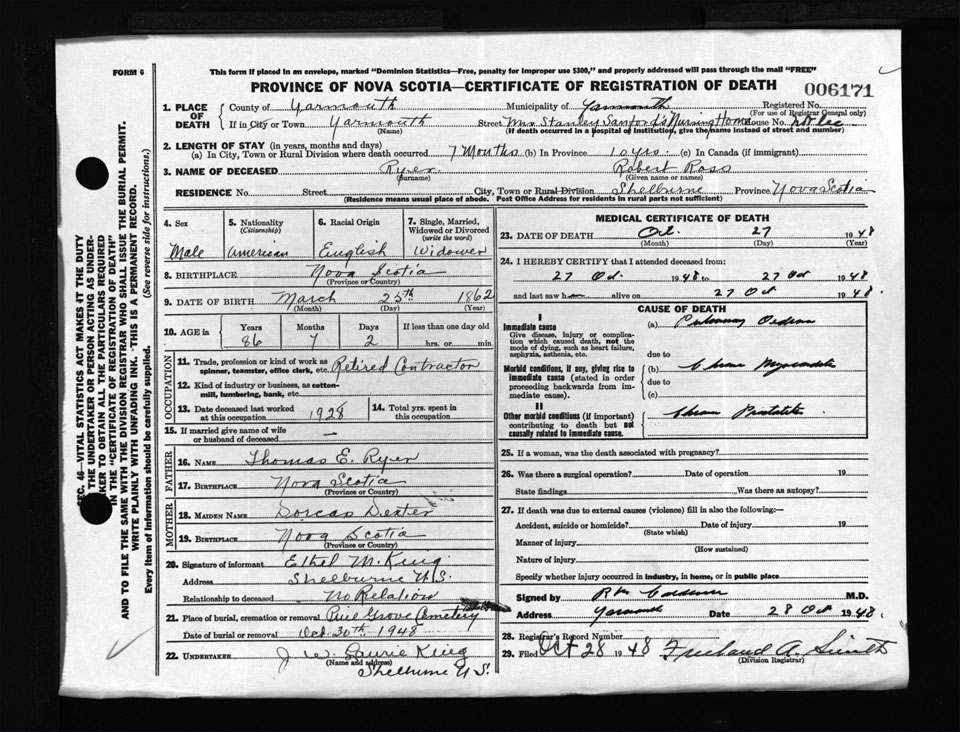 FORM 6
This form if placed in an envelope, marked "Dominion Statistics—Free, penalty for improper use $300," and properly addressed will pass through the mail "FREE"
PROVINCE OF NOVA SCOTIA—CERTIFICATE OF REGISTRATION OF DEATH
006171
1. PLACE OF DEATH County of Yarmouth Municipality of Yarmouth Registered No.
(For use of Registrar General only)
If in City or Town Yarmouth Street Mrs Stanley Sanford's Nursing Home House No.
(Name) (If death occurred in a Hospital or Institution, give the name instead of street and number)
2. LENGTH OF STAY (in years, months and days)
(a) In City, Town or Rural Division where death occurred 7 Months (b) In Province 10 yrs. (c) In Canada (if immigrant)
3. NAME OF DECEASED Ryer Robert Ross
(Surname) (Given name or names)
RESIDENCE No. Street City, Town or Rural Division Shelburne Province Nova Scotia
(Residence means usual place of abode. Post Office Address for residents in rural parts not sufficient)
4. Sex Male
5. Nationality (Citizenship) American
6. Racial Origin English
7. Single, Married, Widowed or Divorced (write the word) Widower
8. BIRTHPLACE Nova Scotia
(Province or Country)
9. DATE OF BIRTH March 25th 1862
(Month) (Day) (Year)
10. AGE in Years Months Days If less than one day old
86 7 2 hrs. or min.
OCCUPATION
11. Trade, profession or kind of work as spinner, teamster, office clerk, etc. Retired Contractor
12. Kind of industry or business, as cotton-mill, lumbering, bank, etc.
13. Date deceased last worked at this occupation 1928
14. Total yrs. spent in this occupation
15. If married give name of wife or husband of deceased —
FATHER
16. NAME Thomas E. Ryer
17. BIRTHPLACE Nova Scotia
(Province or Country)
MOTHER
18. MAIDEN NAME Dorcas Dexter
19. BIRTHPLACE Nova Scotia
(Province or Country)
20. Signature of informant Ethel M. King
Address Shelburne N.S.
Relationship to deceased No Relation
21. Place of burial, cremation or removal Pine Grove Cemetery
Date of burial or removal Oct. 30th 1948
22. UNDERTAKER J. W. Laurie King
(Name and address)
Shelburne N.S.
MEDICAL CERTIFICATE OF DEATH
23. DATE OF DEATH Oct. 27 1948
(Month) (Day) (Year)
24. I HEREBY CERTIFY that I attended deceased from:
27 Oct. 1948 to 27 Oct 1948
and last saw him alive on 27 Oct 1948.
CAUSE OF DEATH
I
Immediate cause
Give disease, injury or complication which caused death, not the mode of dying, such as heart failure, asphyxia, asthenia, etc.
(a) Pulmonary Oedema
due to
Morbid conditions, if any, giving rise to immediate cause (stated in order proceeding backwards from immediate cause).
(b) Chronic Myocarditis
due to
(c)
II
Other morbid conditions (if important) contributing to death but not causally related to immediate cause.
Chronic Prostatitis
25. If a woman, was the death associated with pregnancy?
26. Was there a surgical operation? Date of operation 19
State findings Was there an autopsy?
27. If death was due to external causes (violence) fill in also the following:—
Accident, suicide or homicide? Date of injury 19
(State which)
Manner of injury
(How sustained)
Nature of injury
Specify whether injury occurred in industry, in home, or in public place
Signed by M.D.
Address Yarmouth Date 28 Oct 1948.
28. Registrar's Record Number
29. Filed Oct 28 1948 Freeland A. Smith
(Division Registrar)
SEC. 46—VITAL STATISTICS ACT MAKES IT THE DUTY
THE UNDERTAKER OR PERSON ACTING AS UNDER-
KER TO OBTAIN ALL THE PARTICULARS REQUIRED
IN THE "CERTIFICATE OF REGISTRATION OF DEATH"
AND TO FILE THE SAME WITH THE DIVISION REGISTRAR WHO SHALL ISSUE THE BURIAL PERMIT.
WRITE PLAINLY WITH UNFADING INK. THIS IS A PERMANENT RECORD.
Every item of information should be carefully supplied. (See reverse side for instructions.)